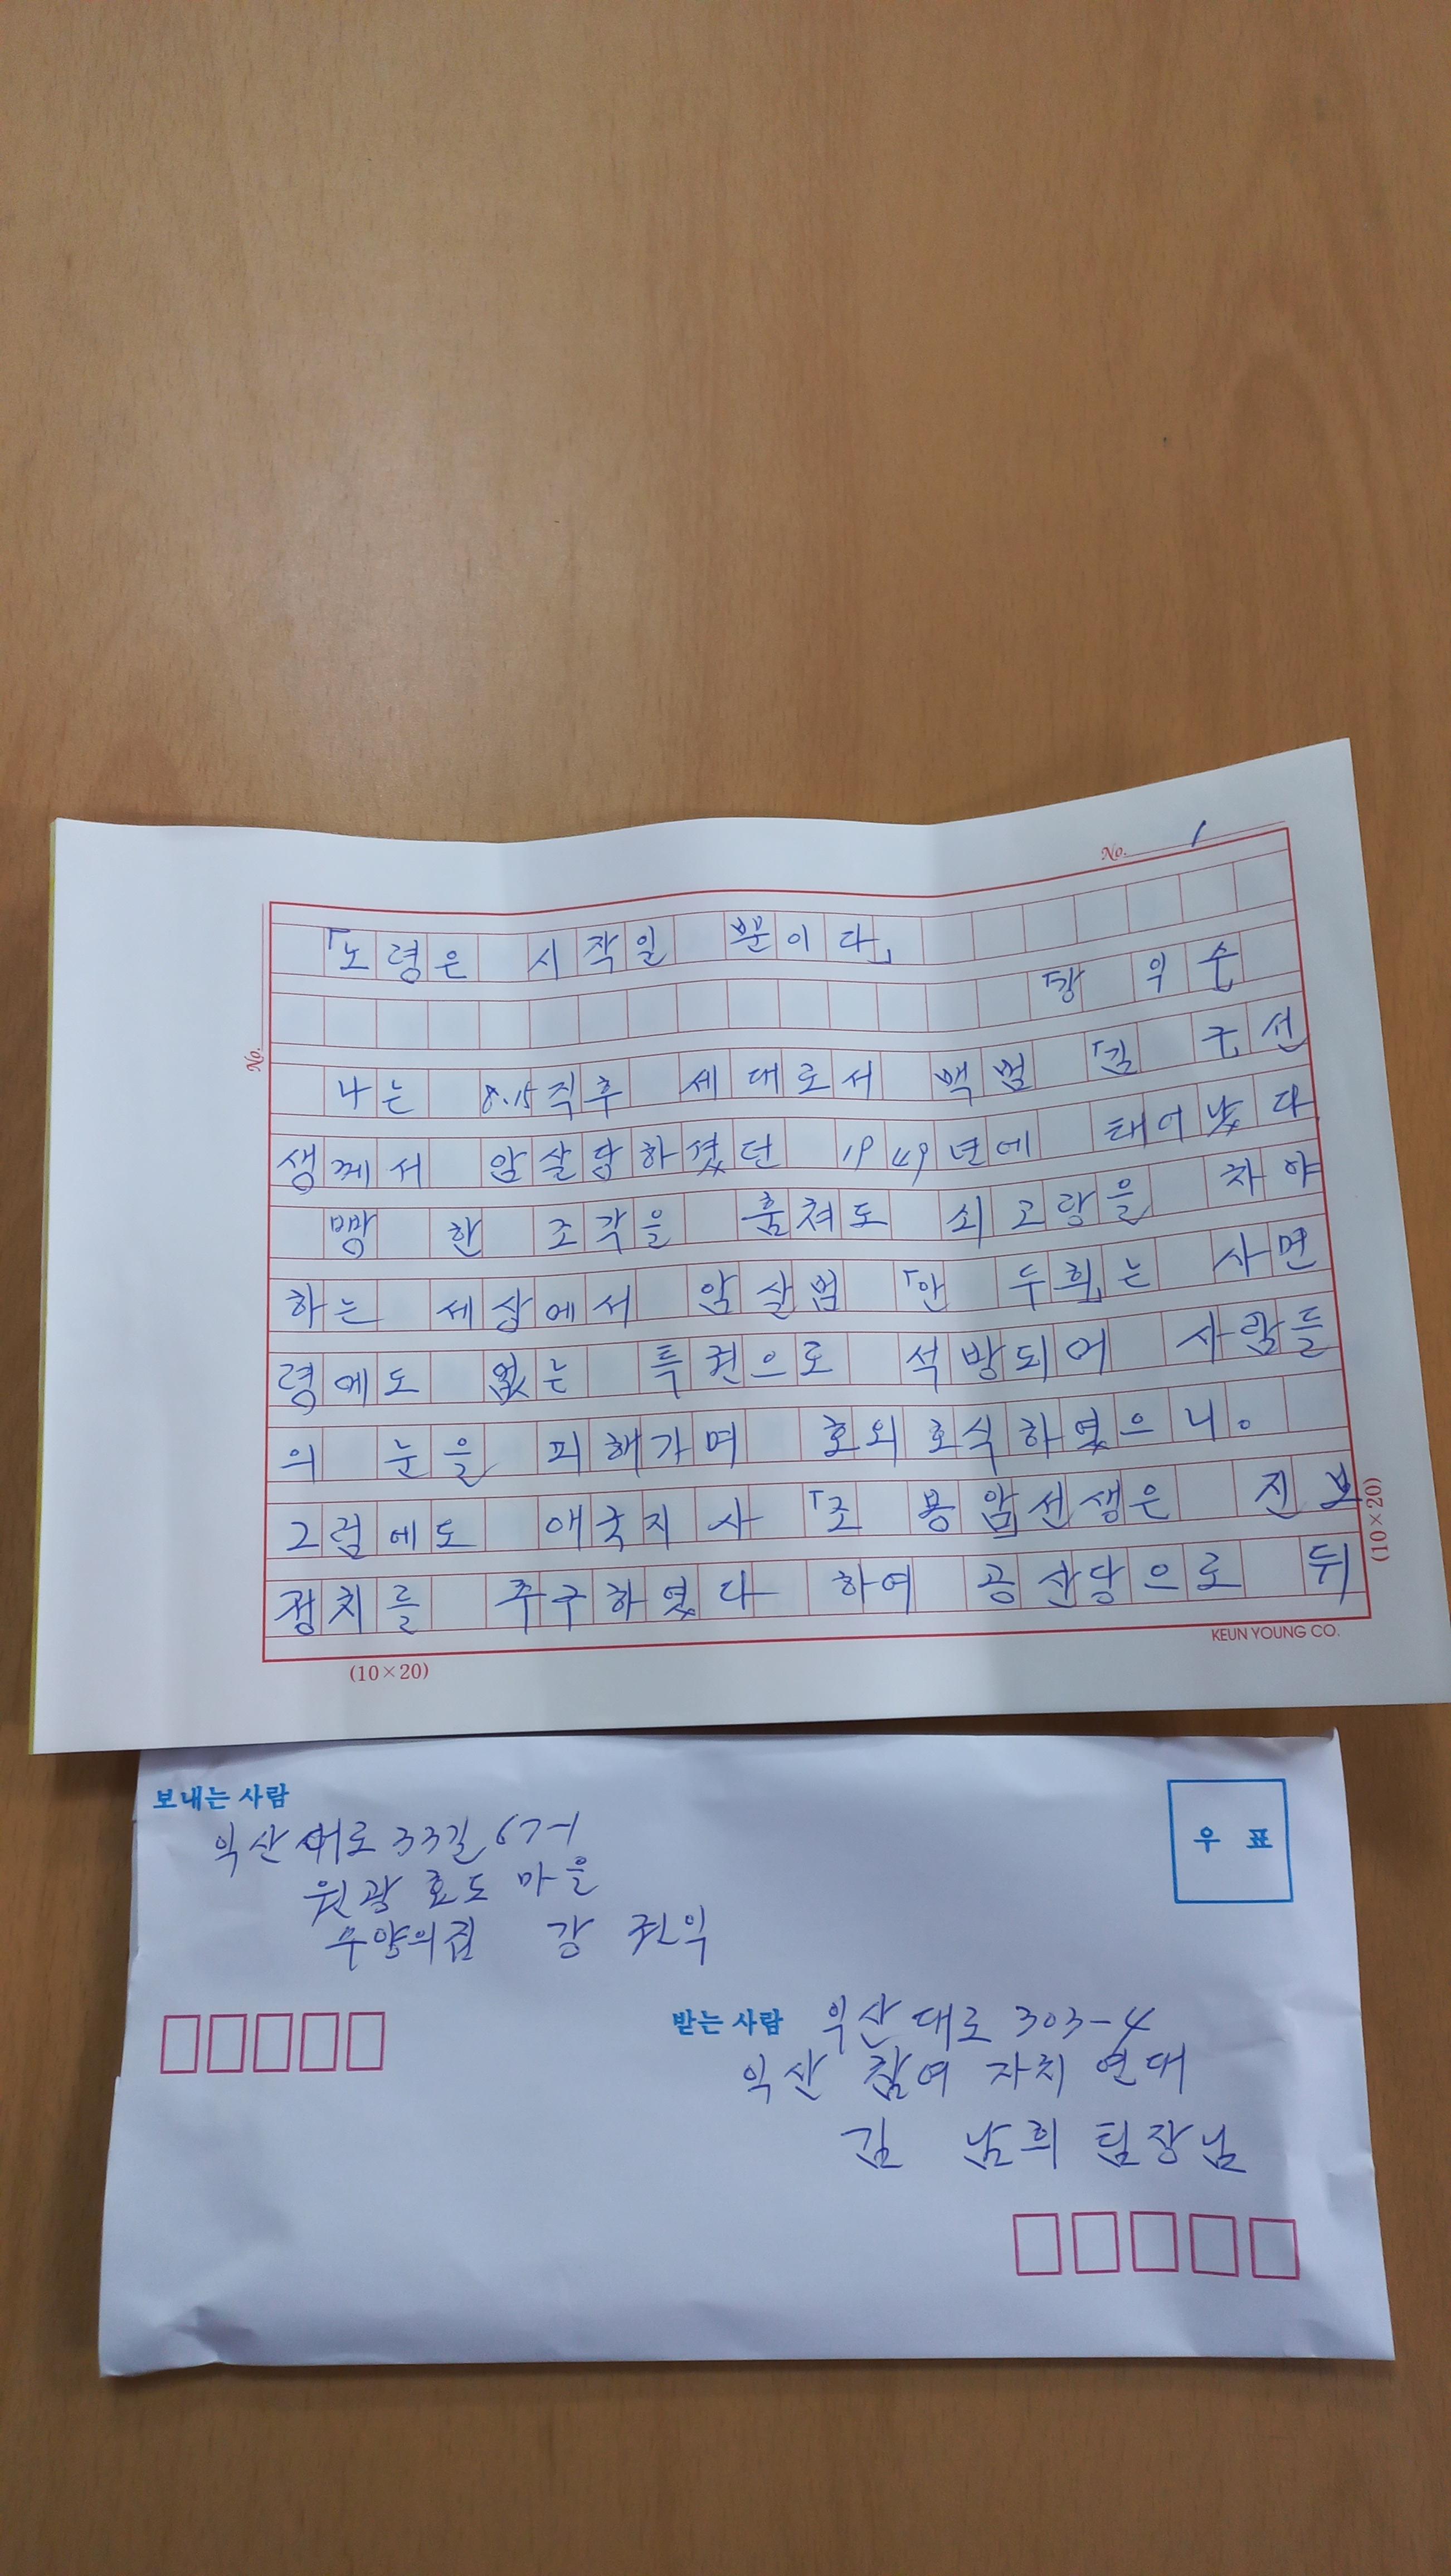 No. 1
「노령은 시작일 뿐이다」
「강 익 순
No.
나는 8.15직후 세대로서 백범 「김 구」선
생께서 암살당하셨던 1949년에 태어났다
빵 한 조각을 훔쳐도 쇠고랑을 차야
하는 세상에서 암살범 「안 두희」는 사면
령에도 없는 특권으로 석방되어 사람들
의 눈을 피해가며 호의호식하였으니。
그럼에도 애국지사 「조 봉암선생은 진보
정치를 추구하였다 하여 공산당으로 뒤
(10×20)
KEUN YOUNG CO.
(10×20)
보내는 사람
익산대로 33길 67-1
원광 효도 마을
수양의집 강
우 표
받는 사람 익산대로 303-4
익산 참여 자치 연대
김 남희 팀장님